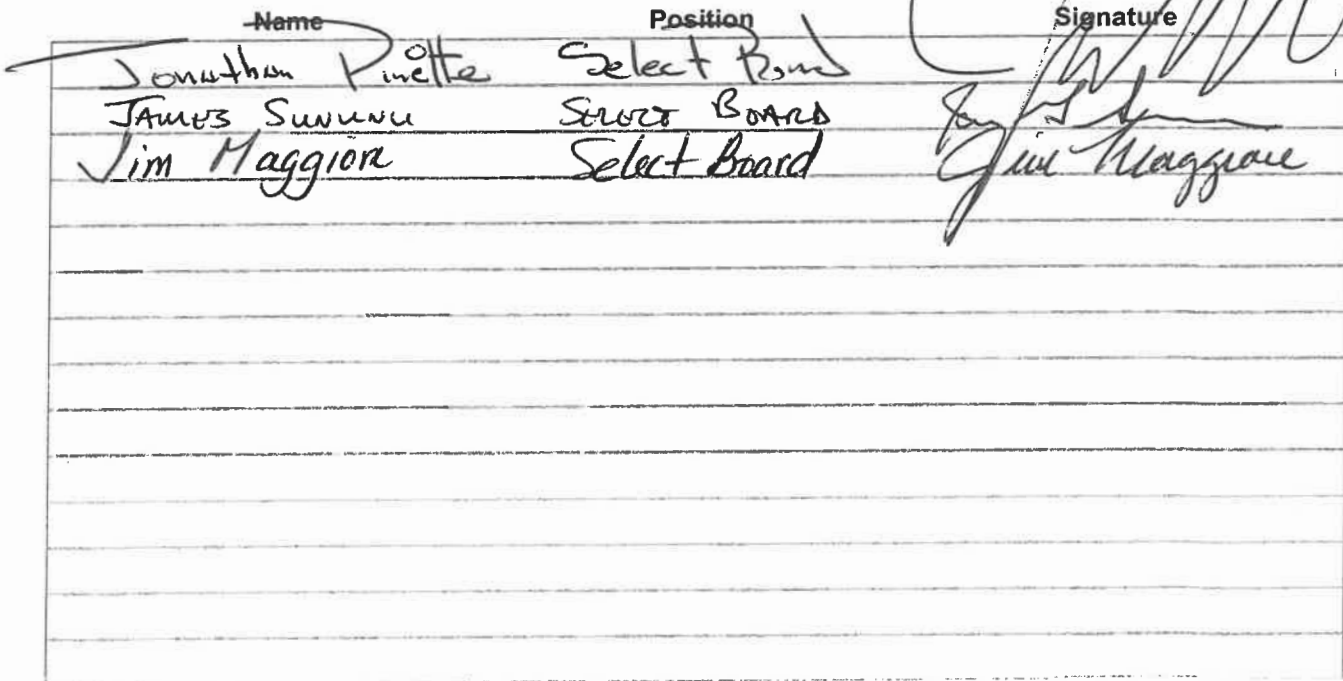 Name Position Signature
Jonathan Pinette Select Board
JAMES SUNUNU SELECT BOARD
Jim Maggiore Select Board Jim Maggiore